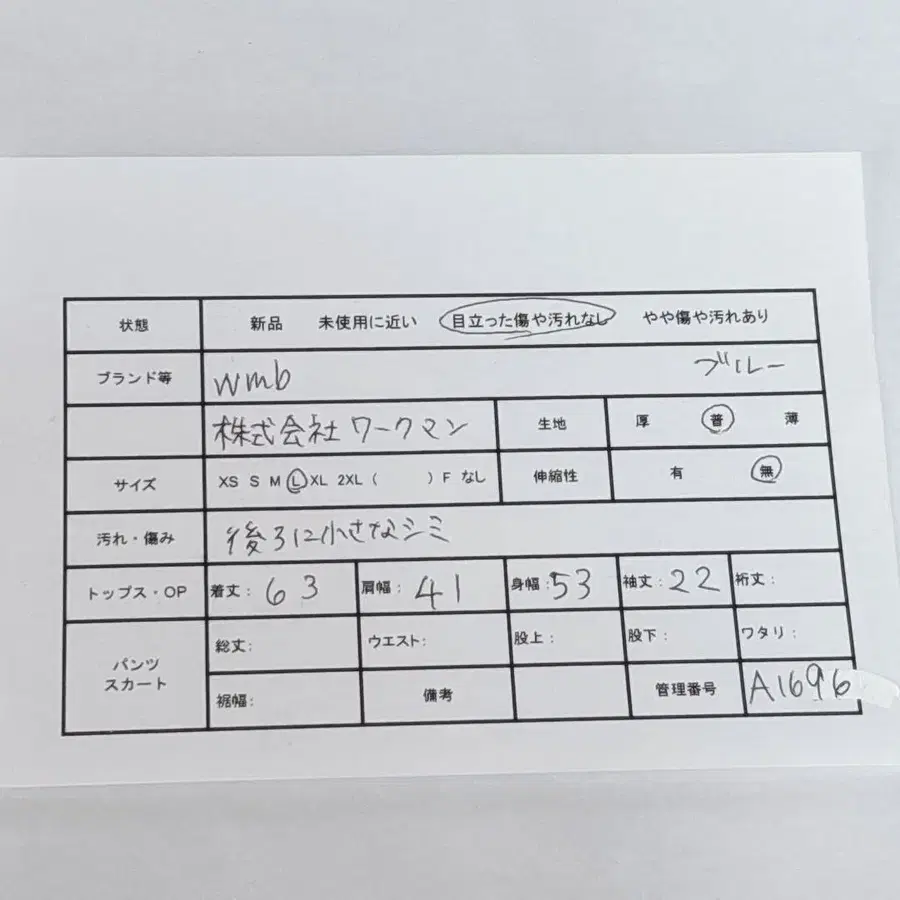 状態 新品 未使用に近い 目立った傷や汚れなし やや傷や汚れあり
ブランド等 wmb ブルー
株式会社ワークマン 生地 厚 普 薄
サイズ XS S M L XL 2XL ( ) F なし 伸縮性 有 無
汚れ・傷み 後ろに小さなシミ
トップス・OP 着丈: 63 肩幅: 41 身幅: 53 袖丈: 22 裄丈:
パンツ スカート 総丈: ウエスト: 股上: 股下: ワタリ:
裾幅: 備考 管理番号 A1696